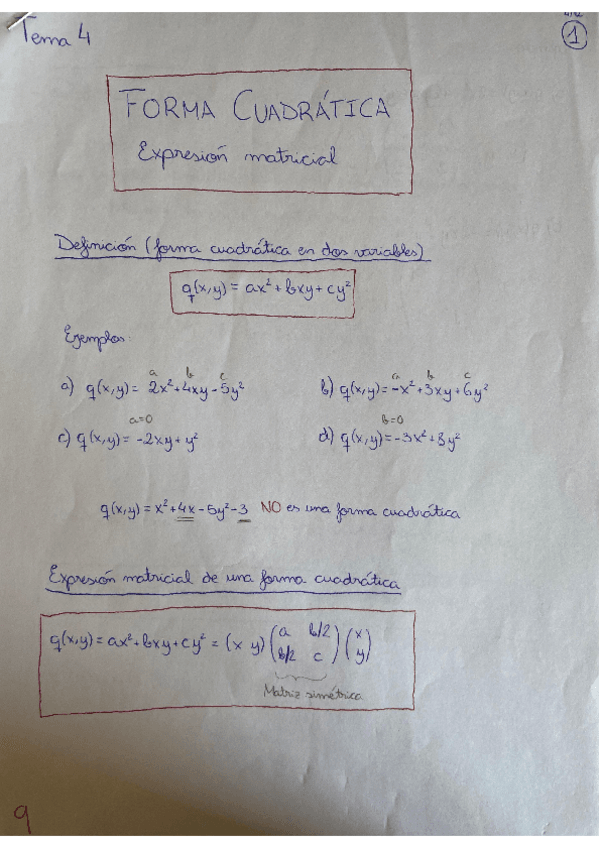 Tema 4
1
FORMA CUADRÁTICA
Expresión matricial
Definición (forma cuadrática en dos variables)
q(x,y) = ax²+bxy+cy²
Ejemplos:
a b c
a) q(x,y) = 2x²+4xy-5y²
a b c
b) q(x,y) = -x²+3xy+6y²
a=0
c) q(x,y) = -2xy+y²
b=0
d) q(x,y) = -3x²+8y²
q(x,y) = x²+4x-5y²-3 NO es una forma cuadrática
Expresión matricial de una forma cuadrática
q(x,y) = ax²+bxy+cy² = (x y) (a b/2 b/2 c) (x y)
Matriz simétrica
9